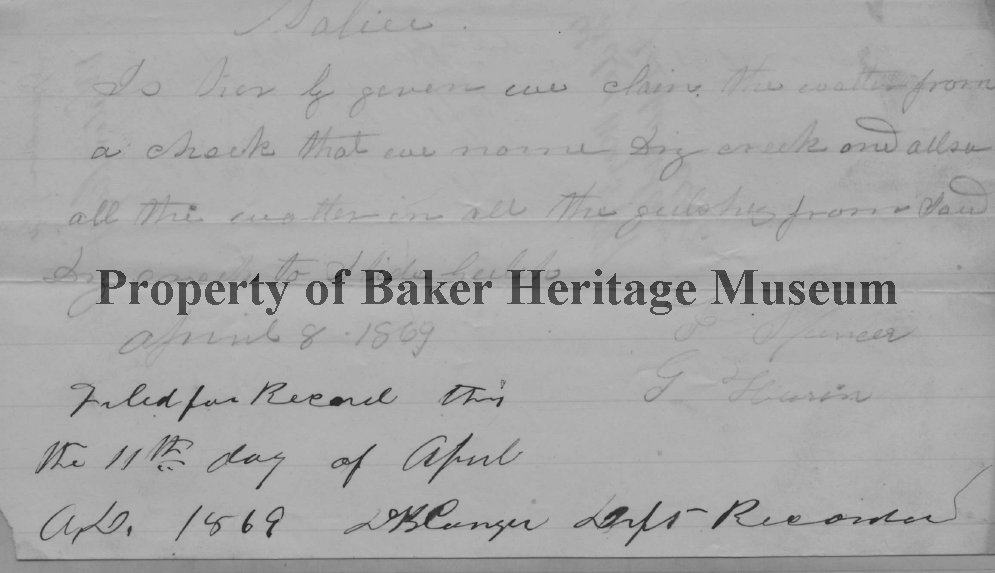 Notice
Is hier by given we claim the watter from
a chreek that we name Dry creek and allso
all the watter in all the gulshes from Said
Dry creek to
Property of Baker Heritage Museum
April 8 1869 P Spencer
G
Filed for Record this
the 11th day of April
A.D. 1869 Dept Recorder